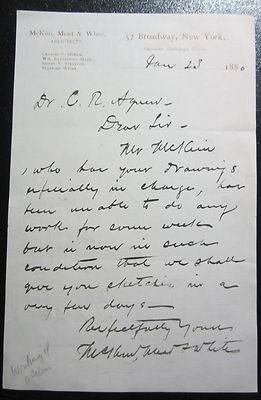 McKim, Mead & White,
ARCHITECTS
57 Broadway, New York,
CHARLES F. McKIM,
WM. RUTHERFORD MEAD,
STANFORD WHITE.
Jan 23 1880
Dr. C. R. Agnew -
Dear Sir -
Mr McKim
, who has your drawings
especially in charge, has
been unable to do any
work for some weeks
but is now in such
condition that we shall
give you sketches in a
very few days -
Respectfully Yours
McKim, Mead & White